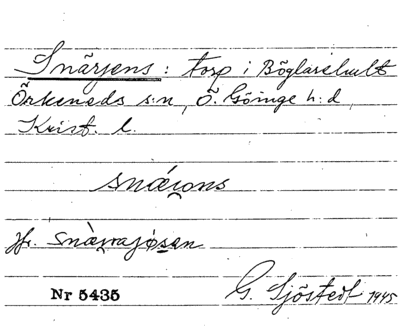 Snärjens: torp i Böglarehult
Örkeneds s:n, Ö. Göinge h:d,
Krist. l.
snærons
Jfr. snärrajösen
Nr 5435 G. Sjöstedt 1945